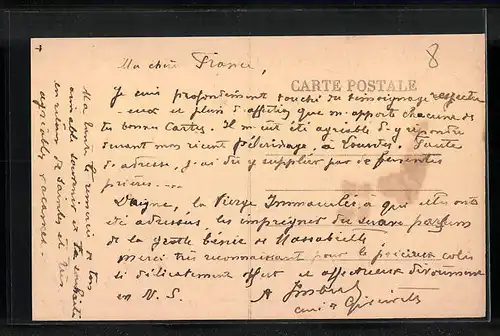 8
Ma chère France,
CARTE POSTALE
Je suis profondément touché du témoignage respectu-
-eux et plein d'affection que m'apporte chacune de
tes bonnes Cartes. Il m'eût été agréable d'y répondre
durant mon récent pèlerinage, à Lourdes. Faute
d'adresse, j'ai dû y suppléer par de ferventes
prières....
Daigne, la Vierge Immaculée, à qui elles ont
été adressées, les imprégner du suave parfum
de la grotte bénie de Massabielle.
Merci très reconnaissant pour le précieux colis
si délicatement offert et affectueux dévouement
en N. S.
A
+
Ma tante te remercie de ton
aimable souvenir et te souhaite
en retour de saintes et
agréables vacances.